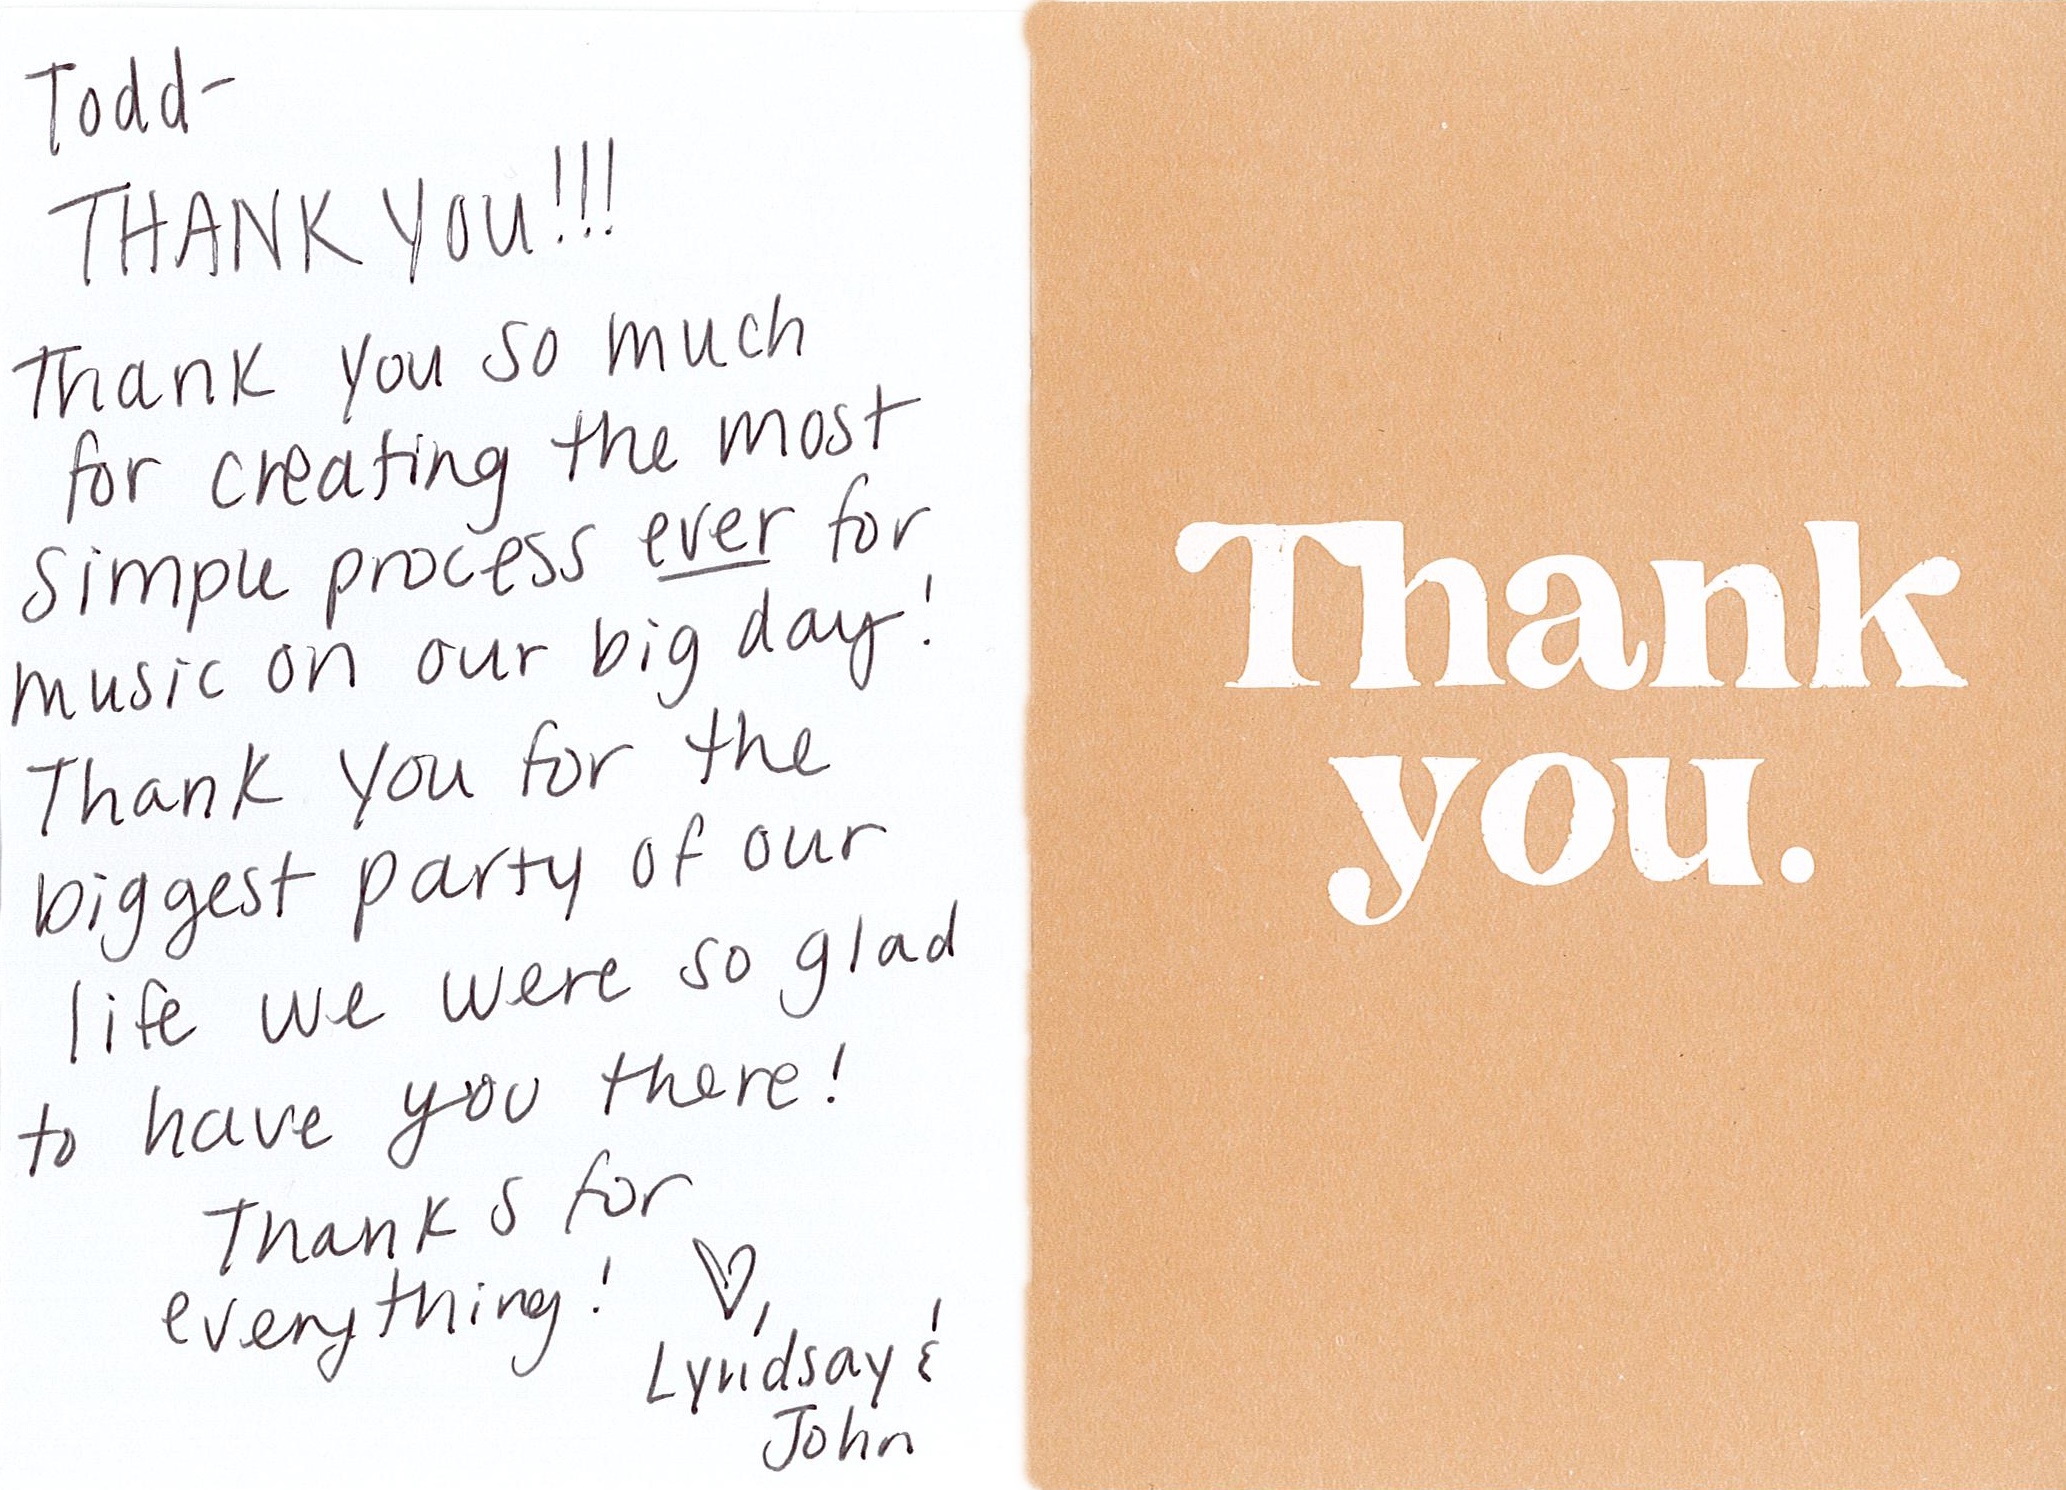 Todd-
THANK YOU!!!
Thank you so much
for creating the most
simple process ever for
music on our big day!
Thank you for the
biggest party of our
life we were so glad
to have you there!
Thanks for
everything!
♡,
Lyndsay &
John
Thank
you.